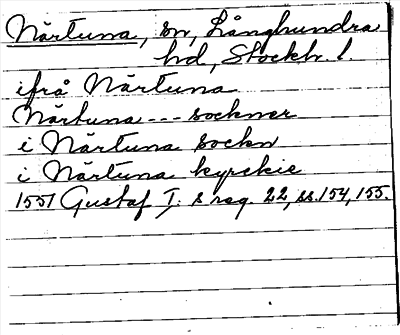 Närtuna, sn, Långhundra
hd, Stockh. l.
ifrå Närtuna
Närtuna --- sockner
i Närtuna sockn
i Närtuna kyrckie
1551 Gustaf I:s reg. 22, ss. 154, 155.